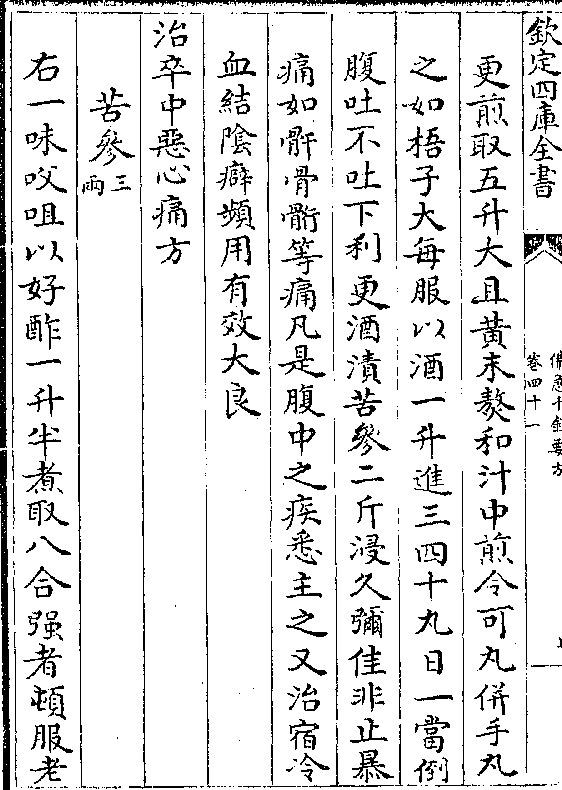 欽定四庫全書
備急千金要方
卷四十一
更煎取五升大且黃末熬和汁中煎令可丸併手丸
之如梧子大每服以酒一升進三四十丸日一當倒
腹吐不吐下利更酒漬苦參二斤浸久彌佳非止暴
痛如骭骨䯒等痛凡是腹中之疾悉主之又治宿冷
血結陰癖頻用有效大良
治卒中惡心痛方
苦參三兩
右一味㕮咀以好酢一升半煮取八合强者頓服老